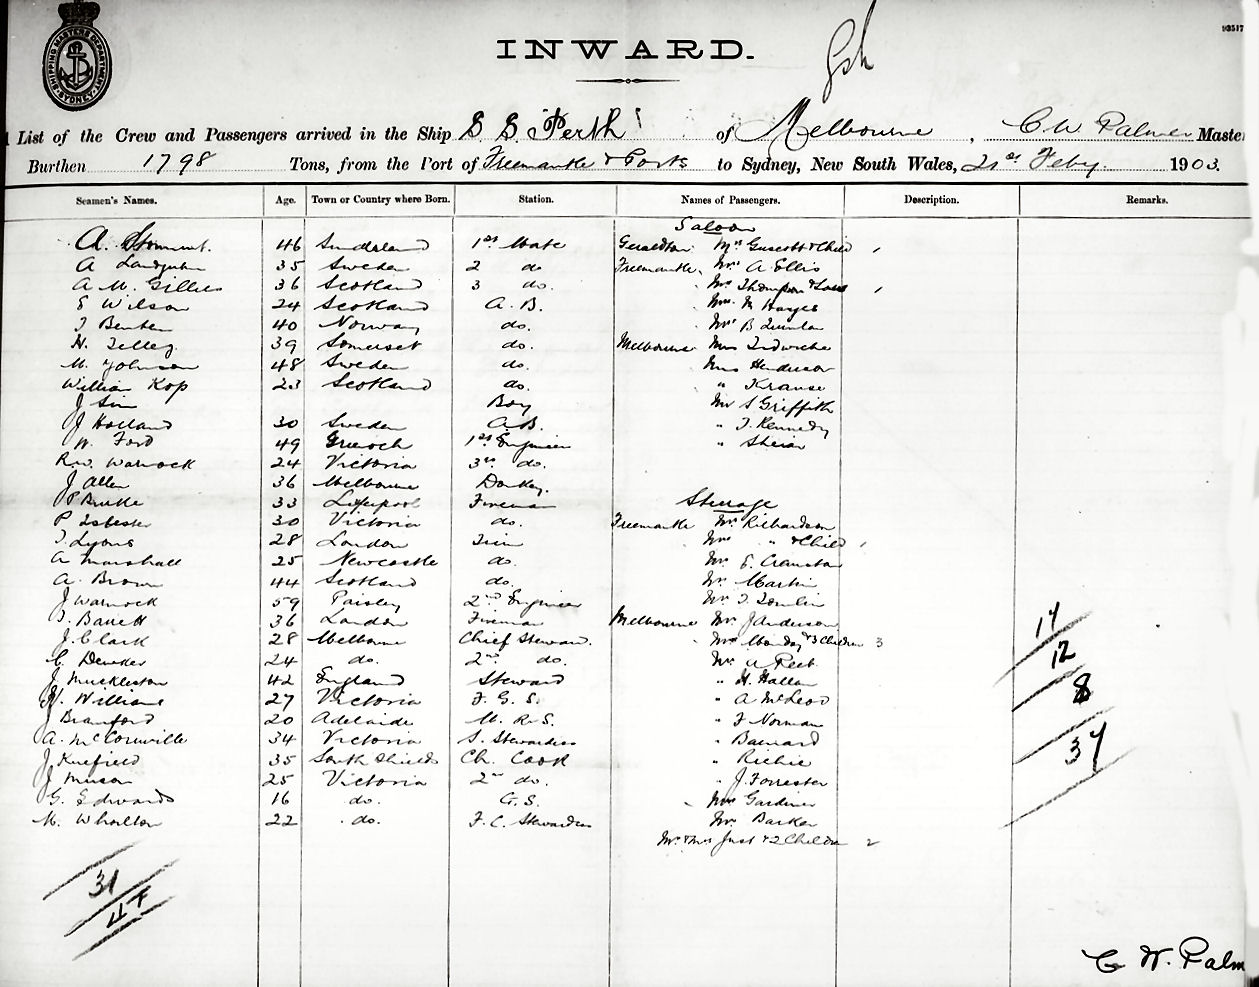 SHIPPING MASTERS DEPARTMENT SYDNEY
INWARD.
List of the Crew and Passengers arrived in the Ship S S "Perth" of Melbourne, C W Palmer Master
Burthen 1798 Tons, from the Port of Freemantle & Ports to Sydney, New South Wales, 21st Feby 1903.
Seamen's Names. Age. Town or Country where Born. Station. Names of Passengers. Description. Remarks.
Saloon
A. 46 Sunderland 1st Mate Geraldton Mrs & Child
A 35 Sweden 2 do Freemantle Mr A Ellis
A. M. Gillies 36 Scotland 3 do. Mrs Thompson
E Wilson 24 Scotland A. B. M Hayes
40 Norway do. B
39 Somerset do. Melbourne Miss
M. Johnson 48 Sweden do. Henderson
William Kop 23 Scotland do. " Krause
J Sim Boy Mr S Griffith
J Holland 30 Sweden A.B. " T. Kennedy
W. Ford 49 Greenock 1st Engineer "
R.W. Warnock 24 Victoria 3rd do.
J Allen 36 Melbourne Donkey.
P Burke 33 Liverpool Fireman Steerage
P 30 Victoria do. Freemantle Mr Richardson
T. Lyons 28 London Mrs " & Child
A Marshall 25 Newcastle do. Mr E. Cranston
A. Brown 44 Scotland do. Mr Martin
J Warnock 59 Paisley 2nd Engineer Mr T Tomlin
Barrett 36 London Fireman Melbourne Mr J Anderson
J. Clark 28 Melbourne Chief Steward Mrs & 3 Children 3
24 do. 2nd do. Mr
J Muckleston 42 England Steward " H.
H. Williams 27 Victoria F. G. S. " A McLeod
J Branford 20 Adelaide M. R. S. " F Norman
A. 34 Victoria S. Stewardess " Barnard
J 35 South Shields Ch. Cook " Richie
J 25 Victoria 2nd do. " J. Forrester
G. Edwards 16 do. G. S. Gardiner
M. Whorlton 22 do. F. C. Stewardess Mr Barker
Mr & Mrs Just & 2 Children 2
12
8
37
31
C W. Palm